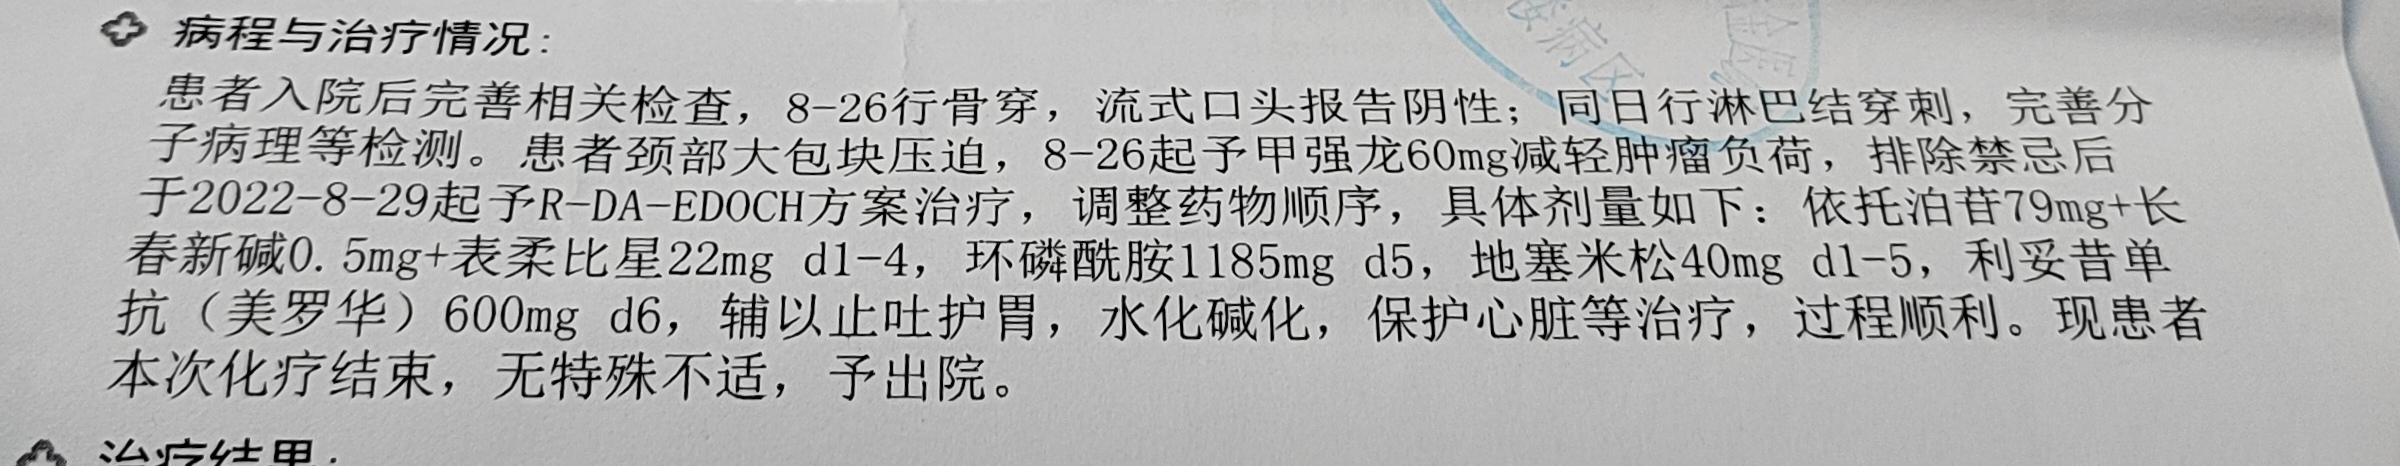 病程与治疗情况:
患者入院后完善相关检查，8-26行骨穿，流式口头报告阴性；同日行淋巴结穿刺，完善分
子病理等检测。患者颈部大包块压迫，8-26起予甲强龙60mg减轻肿瘤负荷，排除禁忌后
于2022-8-29起予R-DA-EDOCH方案治疗，调整药物顺序，具体剂量如下：依托泊苷79mg+长
春新碱0.5mg+表柔比星22mg d1-4，环磷酰胺1185mg d5，地塞米松40mg d1-5，利妥昔单
抗（美罗华）600mg d6，辅以止吐护胃，水化碱化，保护心脏等治疗，过程顺利。现患者
本次化疗结束，无特殊不适，予出院。
治疗结果: